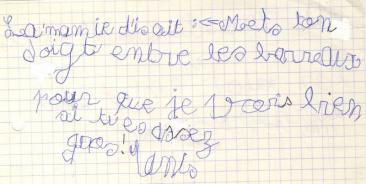 La mamie disait : «Mets ton
doigt entre les barreaux
pour que je vois bien
si tu es assez
gros!»